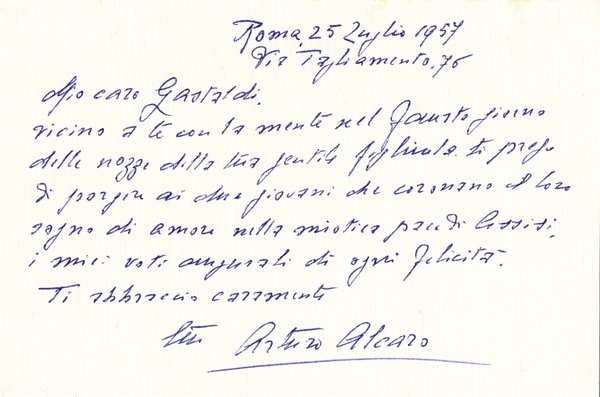 Roma, 25 Luglio 1957
Via Tagliamento, 76
Mio caro Gastaldi,
vicino a te con la mente nel fausto giorno
delle nozze della tua gentile figliuola ti prego
di porgere ai due giovani che coronano il loro
sogno di amore nella mistica pace di Assisi,
i miei voti augurali di ogni felicità.
Ti abbraccio caramente
Arturo Alcaro